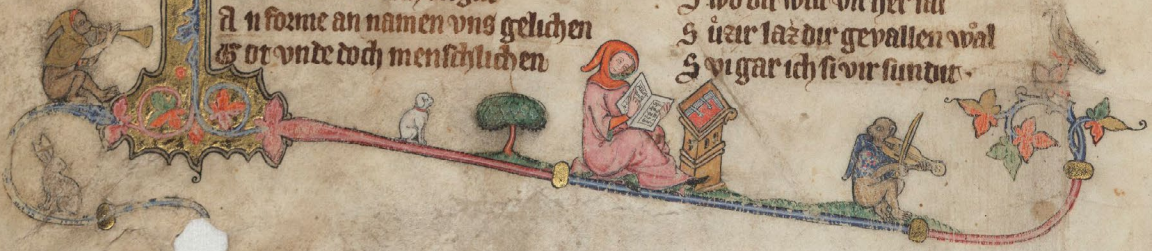 A n forme an namen vns gelichen
G ot vnde doch menschlichen
S wo dir wirt vil her nit
S ůzir laz dir gevallen wål
S wi gar ich si vir sundit.